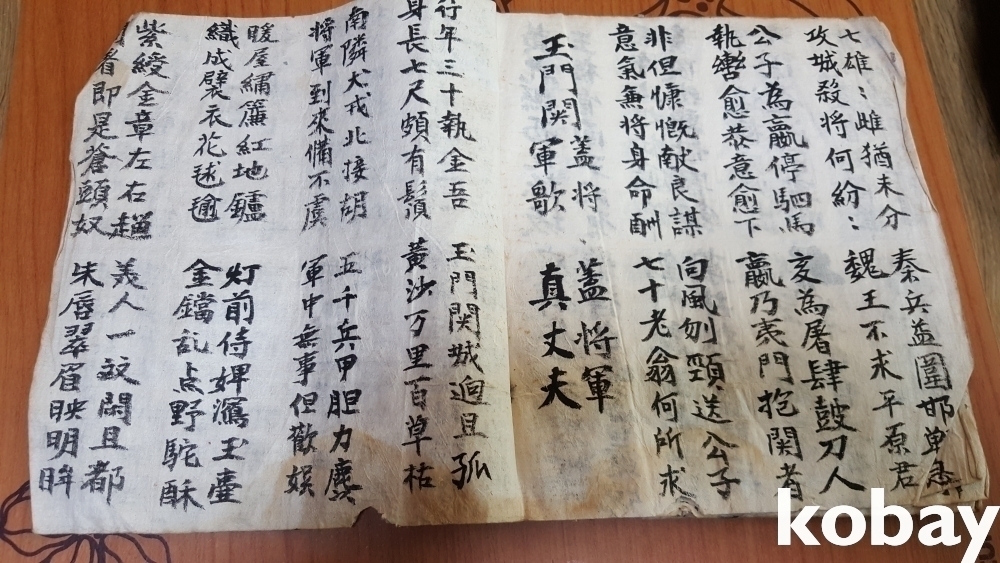 七雄〻雌猶未分
攻城殺將何紛〻
秦兵益圍邯鄲急
魏王不求平原君
公子為嬴停駟馬
執轡愈恭意愈下
亥為屠肆鼓刀人
嬴乃夷門抱関者
非但慷慨献良謀
意氣兼將身命酬
向風刎頸送公子
七十老翁何所求
玉門関蓋將軍歌
蓋將軍
真丈夫
行年三十執金吾
身長七尺頗有鬚
玉門関城逈且孤
黃沙万里百草枯
南隣犬戎北接胡
將軍到來俻不虞
五千兵甲胆力麄
軍中無事但歡娯
暖屋繡簾紅地鑪
織成壁衣花毬毹
灯前侍婢瀉玉壷
金鐺乱点野駝酥
紫綬金章左右趨
者即是蒼頭奴
美人一雙閑且都
朱唇翠眉映明眸
kobay